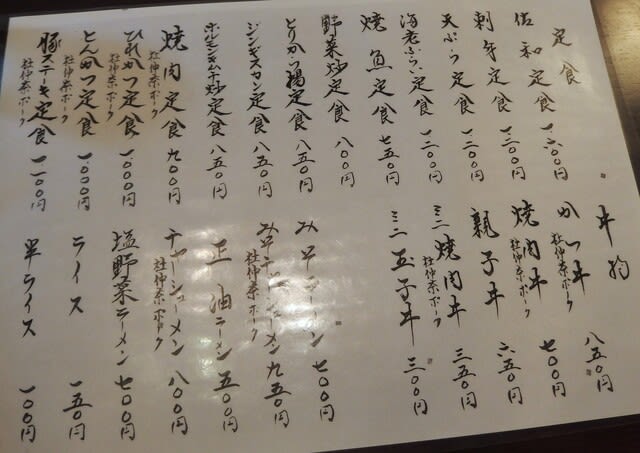 定食
佐和定食 一六〇〇円
刺身定食 一三〇〇円
天ぷら定食 一二〇〇円
海老ふらい定食 一二〇〇円
焼魚定食 七五〇円
野菜炒定食 八〇〇円
とりから揚定食 八五〇円
ジンギスカン定食 八五〇円
ホルモンキムチ炒定食 八五〇円
焼肉定食 九〇〇円
杜仲茶ポーク
ひれかつ定食 一、〇〇〇円
杜仲茶ポーク
とんかつ定食 一、〇〇〇円
杜仲茶ポーク
豚ステーキ定食 一、一〇〇円
杜仲茶ポーク
丼物
かつ丼 八五〇円
杜仲茶ポーク
焼肉丼 七〇〇円
杜仲茶ポーク
親子丼 六五〇円
ミニ焼肉丼 三五〇円
杜仲茶ポーク
ミニ玉子丼 三〇〇円
みそラーメン 七〇〇円
みそチャーシューメン 九五〇円
杜仲茶ポーク
正油ラーメン 五〇〇円
チャーシューメン 八〇〇円
杜仲茶ポーク
塩野菜ラーメン 七〇〇円
ライス 一五〇円
半ライス 一〇〇円